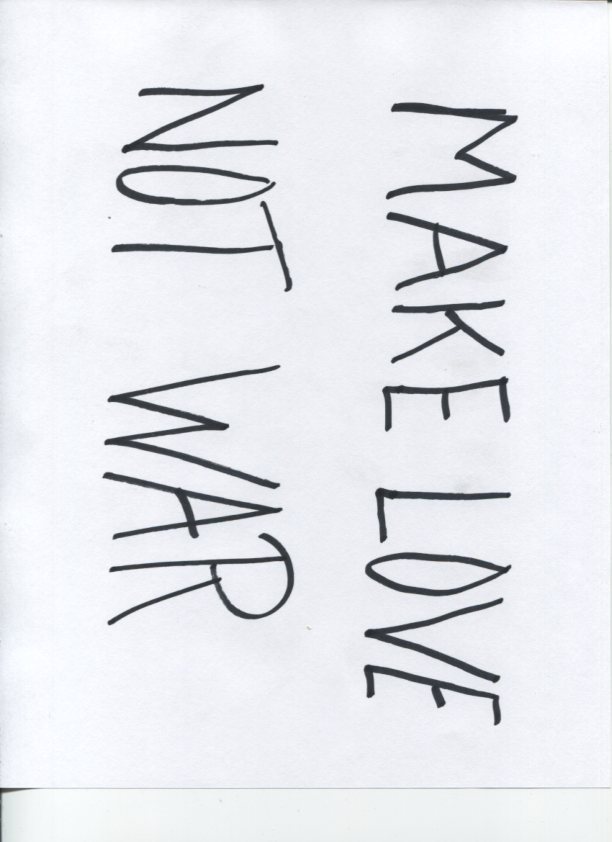 MAKE LOVE
NOT WAR